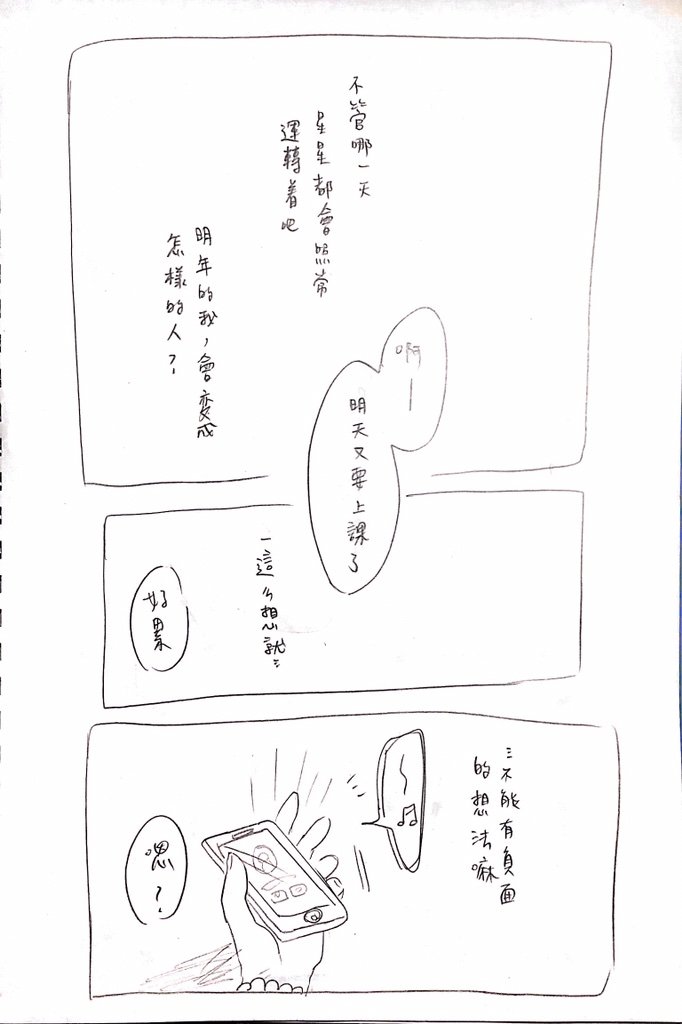 不管哪一天
星星都會照常
運轉着吧
明年的我，會變成
怎樣的人？
啊—
明天又要上課了
一這么想就⋯
好累
⋯不能有負面
的想法嘛
～♫
嗯？